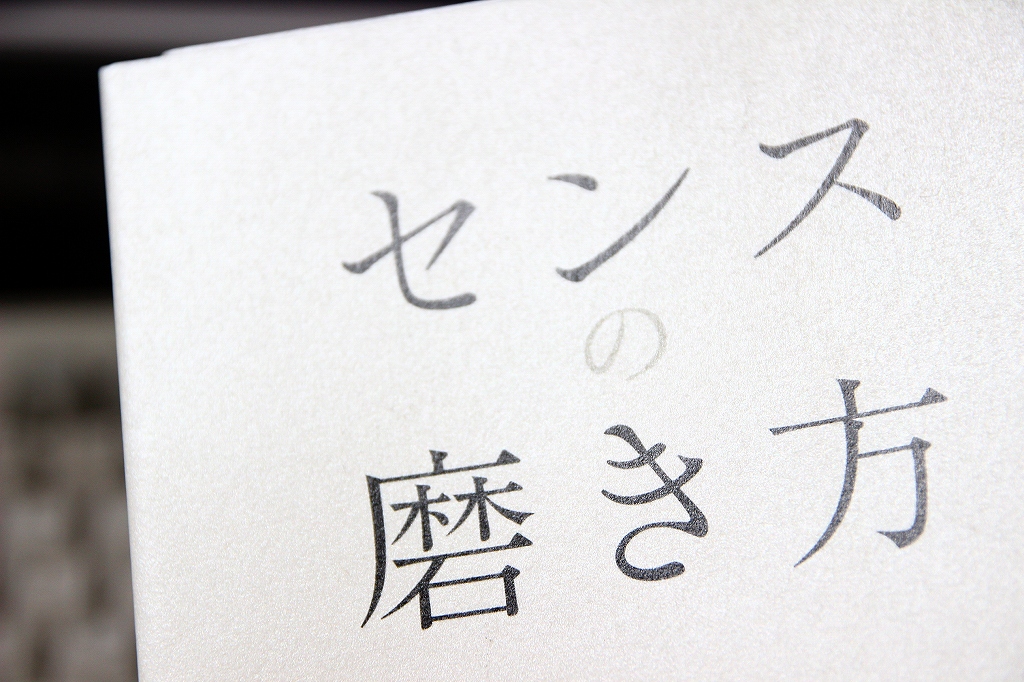 センス
の
磨き方